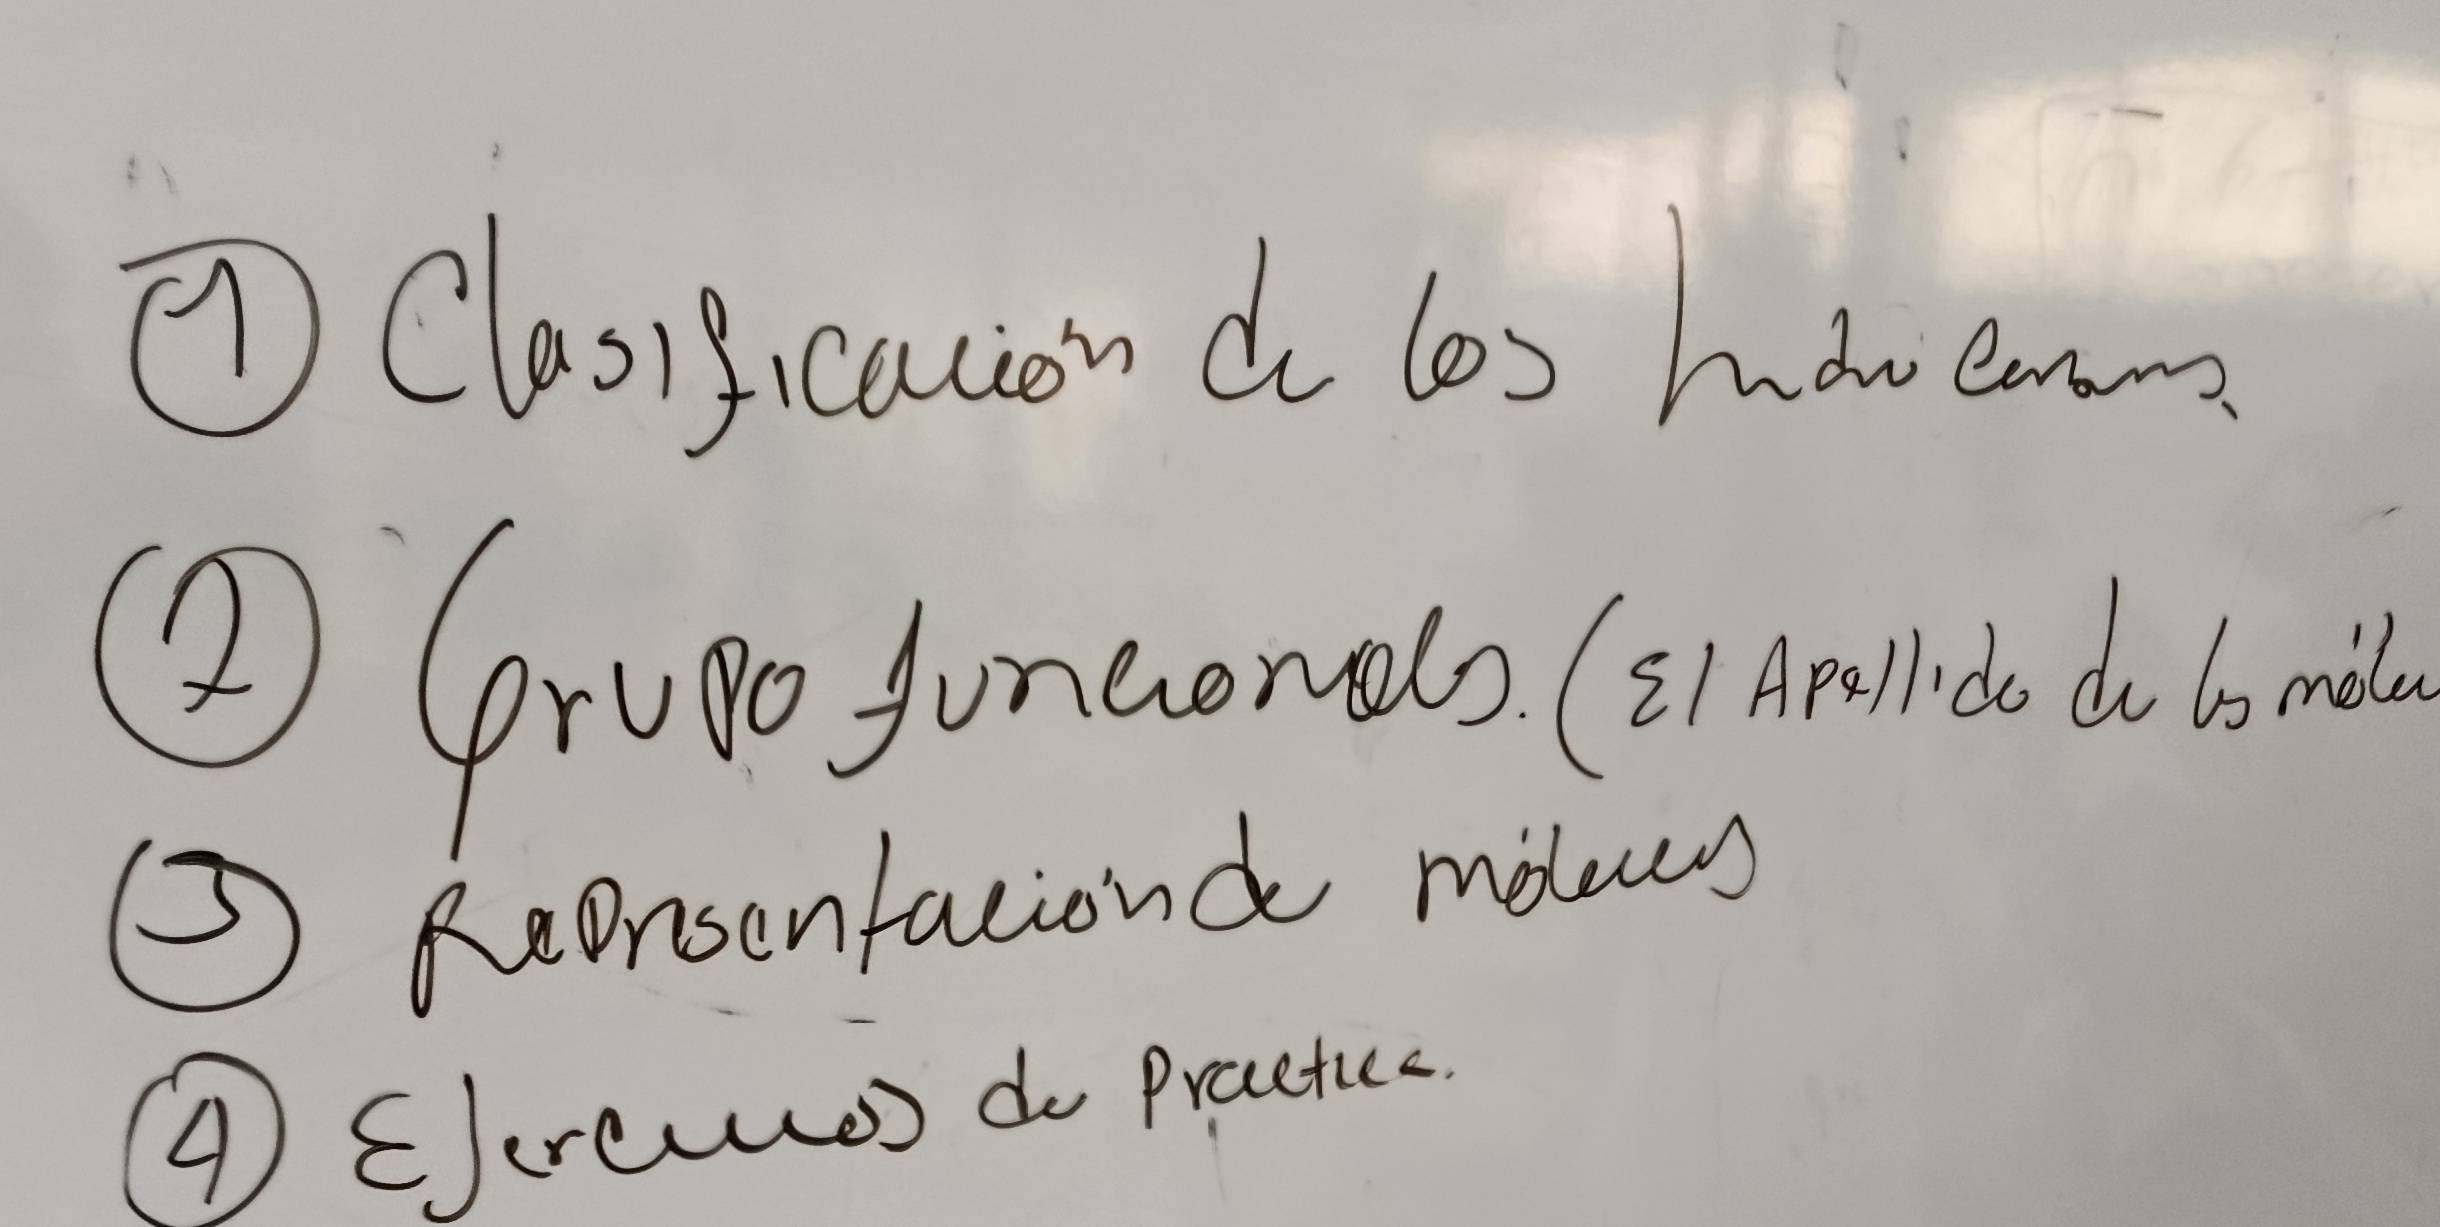 ① Clasificación de los hidrocarburos.
② Grupo funcionales. (El Apellido de las molécu
③ Representación de moléculas
④ Ejercicios de Practica.